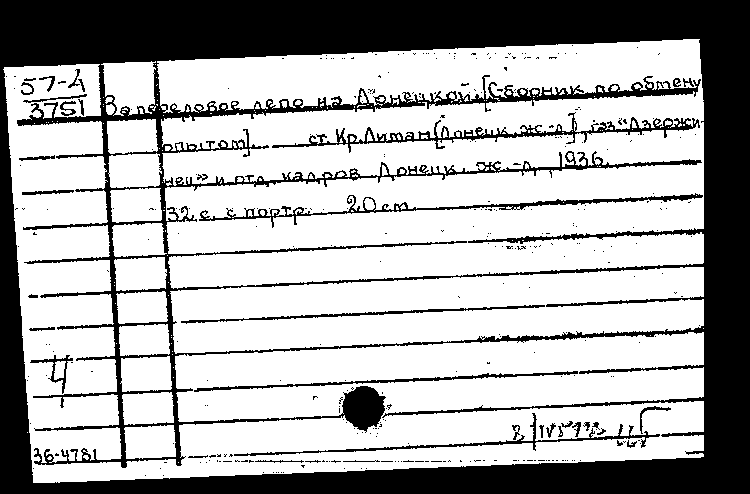 57-4
3751
За передовое депо на Донецкой. [Сборник по обмену
опытом]. ст. Кр. Лиман [Донецк. ж.-д.], газ "Дзержи-
нец" и отд. кадров Донецк. ж.-д., 1936.
32 с. с портр. 20 см.
4
36-4781